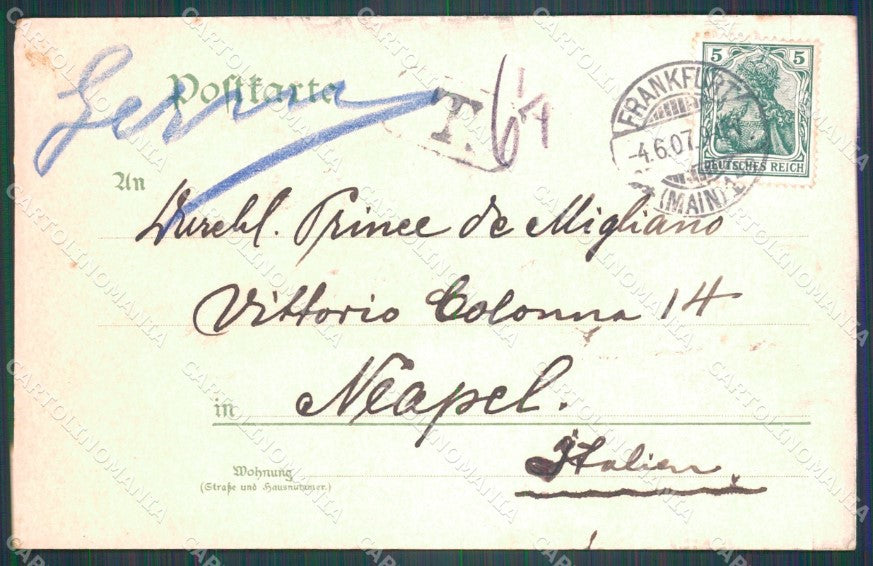 Postkarte
T.
5 5
DEUTSCHES REICH
FRANKFURT
-4.6.07.
(MAIN)
An
Durchl. Prince de Migliano
Vittorio Colonna 14
in Neapel.
Italien.
Wohnung
(Straße und Hausnummer.)
CARTOLINOMANIA